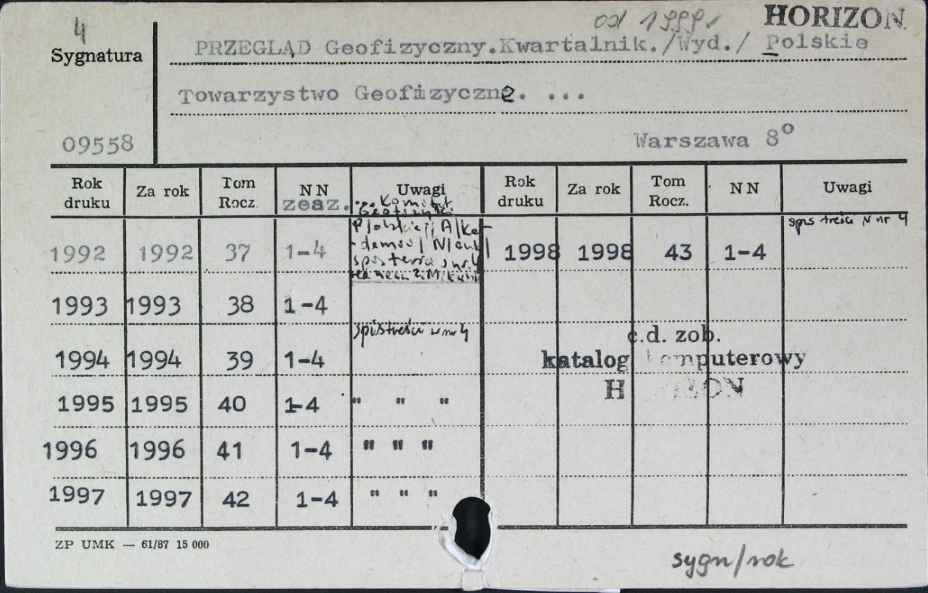 4
od 1999
HORIZON
Sygnatura
PRZEGLĄD Geofizyczny.Kwartalnik./Wyd./ Polskie
Towarzystwo Geofizyczne. ...
09558
Warszawa 8°
Rok druku Za rok Tom Rocz. NN zesz. Uwagi Rok druku Za rok Tom Rocz. NN Uwagi
... Komitet
Geofizyki
spis treści w nr 4
1992 1992 37 1-4 1998 1998 43 1-4
spis treści w nr 4
1993 1993 38 1-4
spis treści w nr 4
c.d. zob.
1994 1994 39 1-4 katalog komputerowy
HORIZON
1995 1995 40 1-4 " " "
1996 1996 41 1-4 " " "
1997 1997 42 1-4 " " "
ZP UMK — 61/87 15 000
sygn/rok